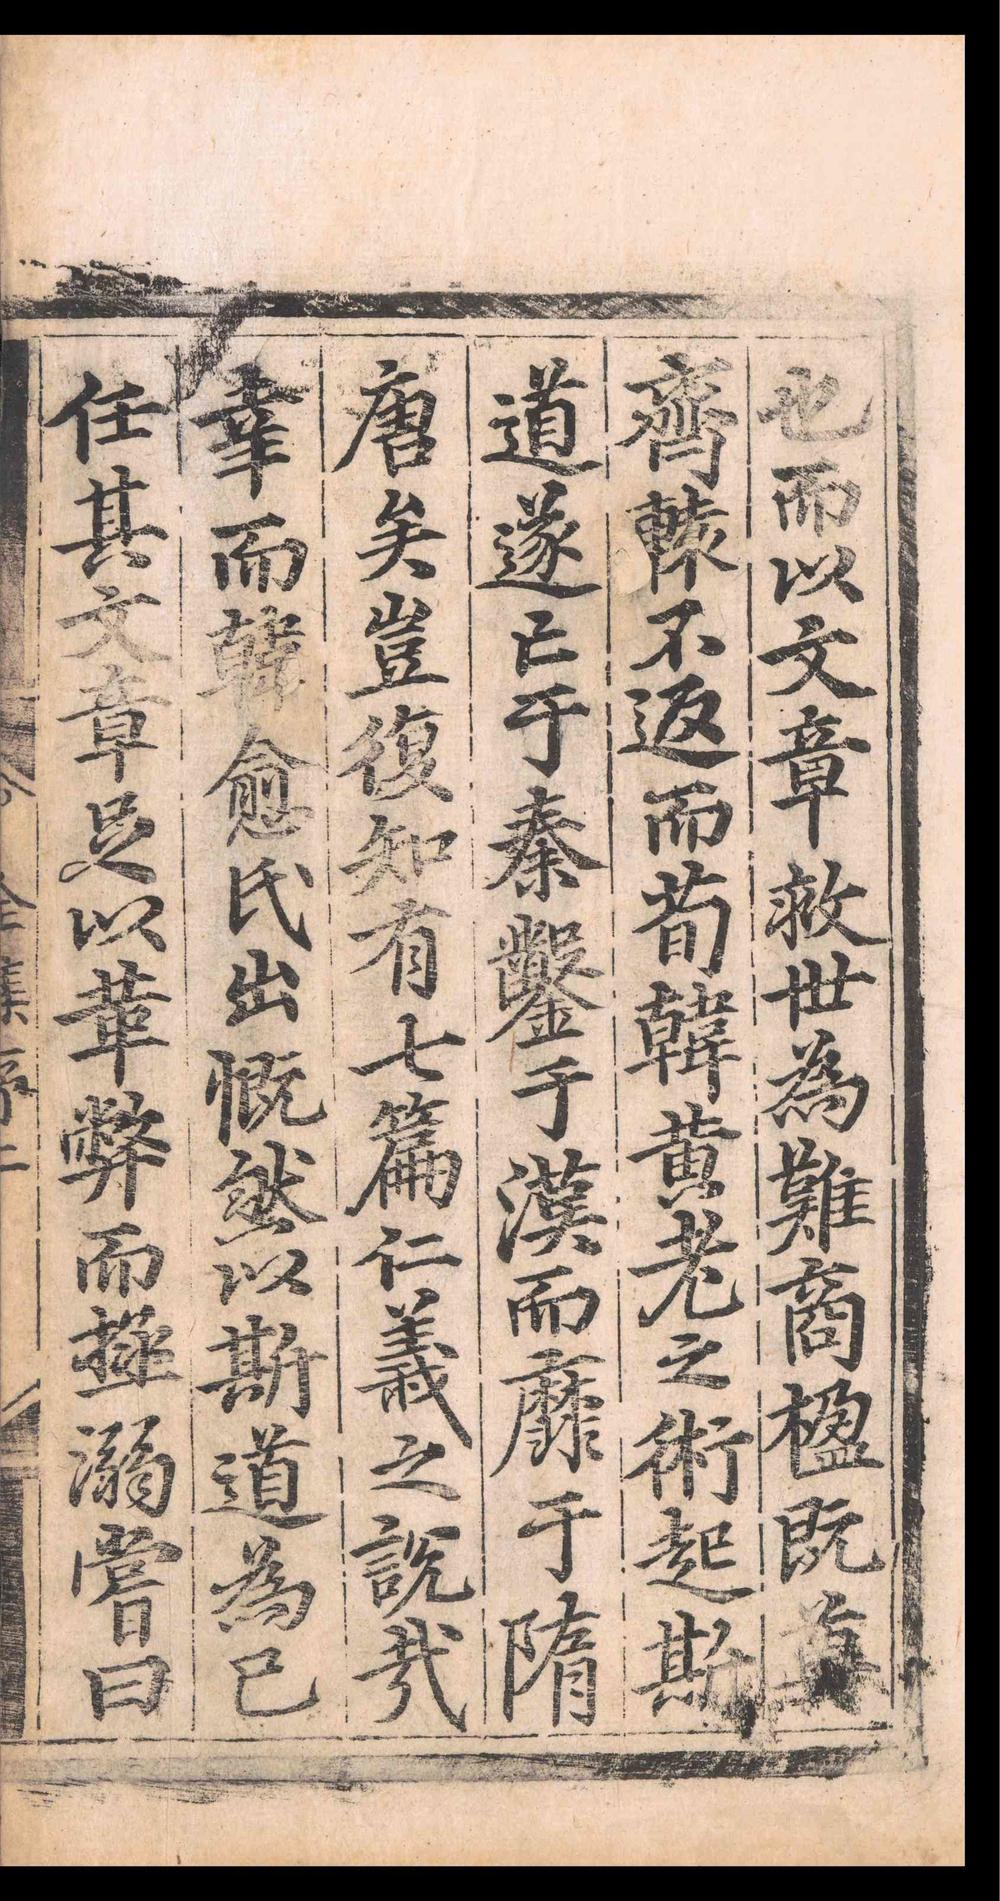 也而以文章救世為難商楹既奠
齊轅不返而荀韓黄老之術起斯
道遂亡于秦鑿于漢而靡于隋
唐矣豈復知有七篇仁義之説㢤
幸而韓愈氏出慨然以斯道為己
任其文章足以革弊而拯溺嘗曰
全集序二